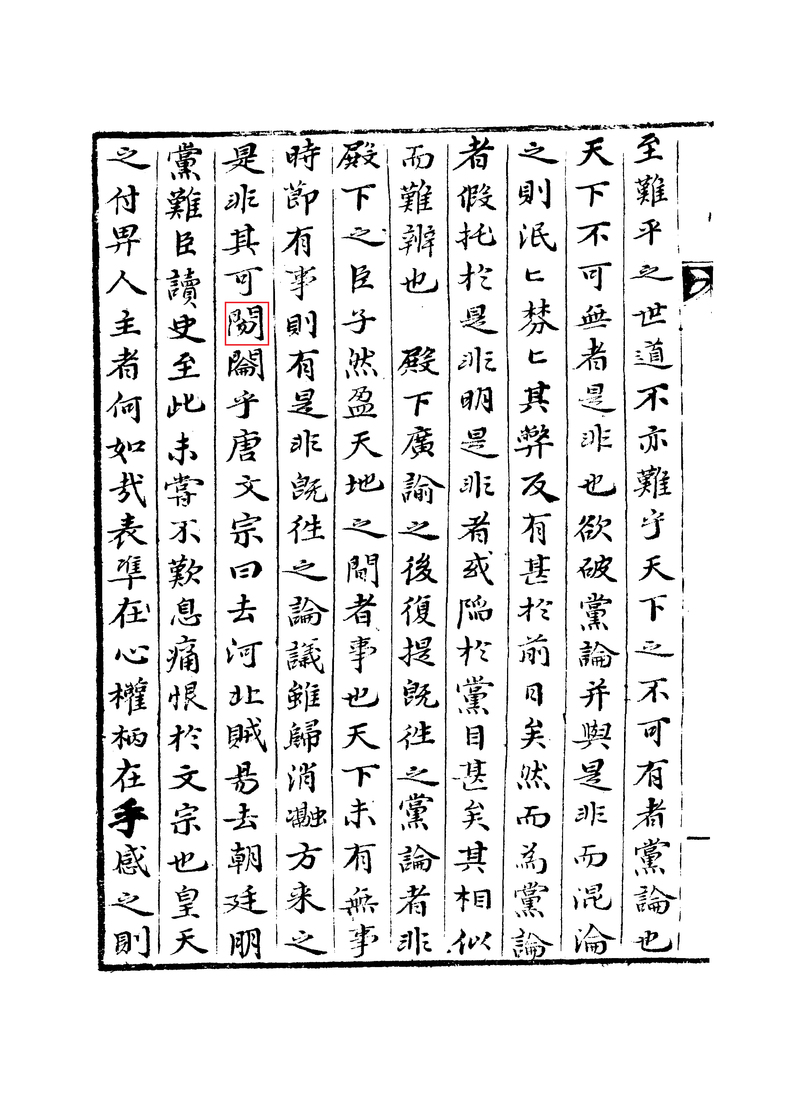 至難平之世道不亦難乎天下之不可有者黨論也
天下不可無者是非也欲破黨論并與是非而混淪
之則泯匕棼匕其弊反有甚於前日矣然而為黨論
者假托於是非明是非者或陷於黨目甚矣其相似
而難辨也 殿下廣諭之後復提旣徃之黨論者非
殿下之臣子然盈天地之間者事也天下未有無事
時節有事則有是非旣徃之論議雖歸消融方来之
是非其可乎唐文宗曰去河北賊易去朝廷朋
黨難臣讀史至此未嘗不歎息痛恨於文宗也皇天
之付畀人主者何如哉表準在心權柄在手感之則